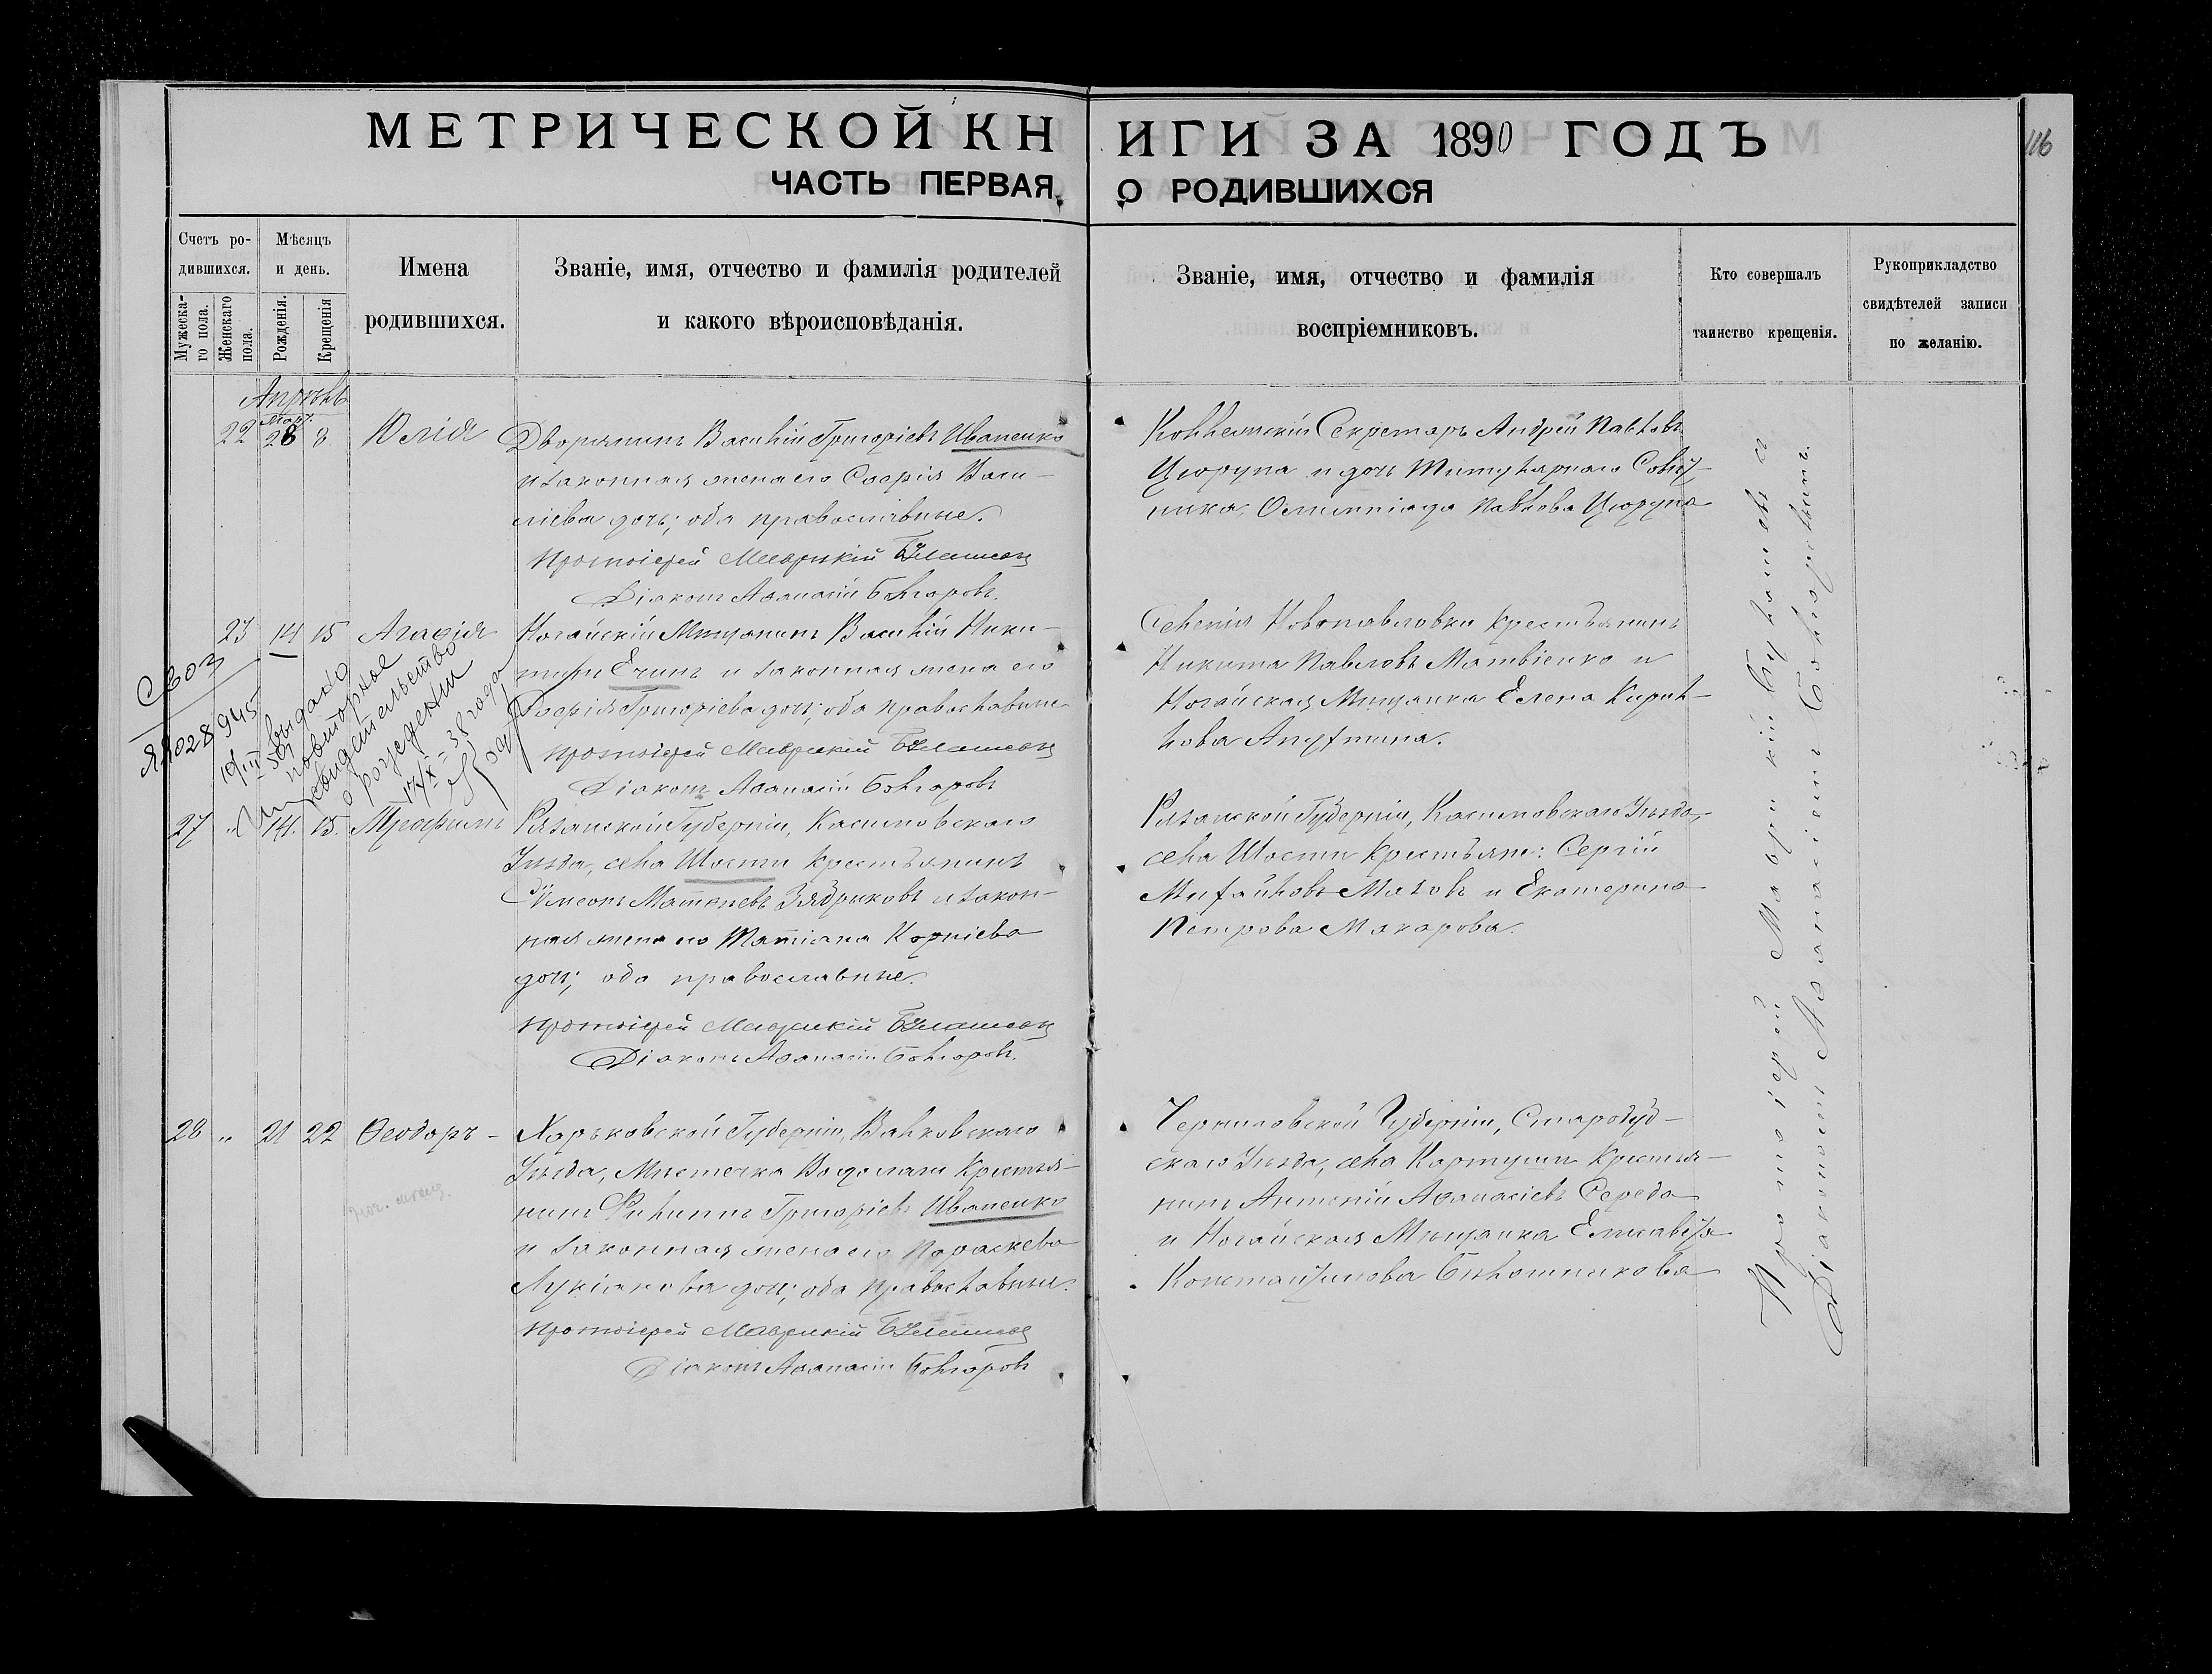 МЕТРИЧЕСКОЙ КНИГИ ЗА 1890 ГОДЪ
116
ЧАСТЬ ПЕРВАЯ, О РОДИВШИХСЯ
Счетъ ро-
дившихся.
Мужеска-
го пола.
Женскаго
пола.
Мѣсяцъ
и день.
Рожденія.
Крещенія
Имена
родившихся.
Званіе, имя, отчество и фамилія родителей
и какого вѣроисповѣданія.
Званіе, имя, отчество и фамилія
воспріемниковъ.
Кто совершалъ
таинство крещенія.
Рукоприкладство
свидѣтелей записи
по желанію.
Апрѣль
Март.
22 28 8 Юлія
Дворянинъ Василій Григоріевъ Иваненко
и законная жена его Софія Васи-
ліева дочь; оба православные.
Протоіерей Маврикій
Діаконъ Аѳанасій Болгаровъ.
Коллежскій Секретарь Андрей Павловъ
Цюрупа и дочь Титулярнаго Совѣт-
ника Олимпіада Павлова Цюрупа
23 14 15 Агаѳія
Ногайскій Мѣщанинъ Василій Ники-
Ечинъ и законная жена его
Софія Григоріева дочь; оба православные
Протоіерей Маврикій
Діаконъ Аѳанасій Болгаровъ
Селенія Новопавловки крестьянинъ
Никита Павловъ Матвіенко и
Ногайская Мѣщанка Елена Кирил-
лова Апухтина.
ЯЮ 028945
выдано
повторное
свидетельство
о рождении
17/X - 38 года
27 " 14. 15. Трофимъ
Рязанской Губерніи, Касимовскаго
Уѣзда, села Шости крестьянинъ
Сѵмеонъ Матвѣевъ Зябриковъ и закон-
ная жена его Татіана Корніева
дочь; оба православные.
Протоіерей Маврикій
Діаконъ Аѳанасій Болгаровъ.
Рязанской Губерніи, Касимовскаго Уѣзда,
села Шости Крестьяне: Сергій
Михайловъ Мазовъ и Екатерина
Петрова Макарова.
28 " 21 22 Ѳеодоръ -
Харьковской Губерніи, Валковскаго
Уѣзда, Мѣстечка Водолаги Крестья-
нинъ Филиппъ Григоріевъ Иваненко
и законная жена его Параскева
Лукіанова дочь; оба православные.
Протоіерей Маврикій
Діаконъ Аѳанасій Болгаровъ
Черниговской Губерніи, Стародуб-
скаго Уѣзда, села Картушин Крестья-
нинъ Антоній Аѳанасіевъ Середа
и Ногайская Мѣщанка Елисавета
Константинова Бѣлошникова
Протоіерей Маврикій съ
Діакономъ Аѳанасіемъ Болгаровымъ.